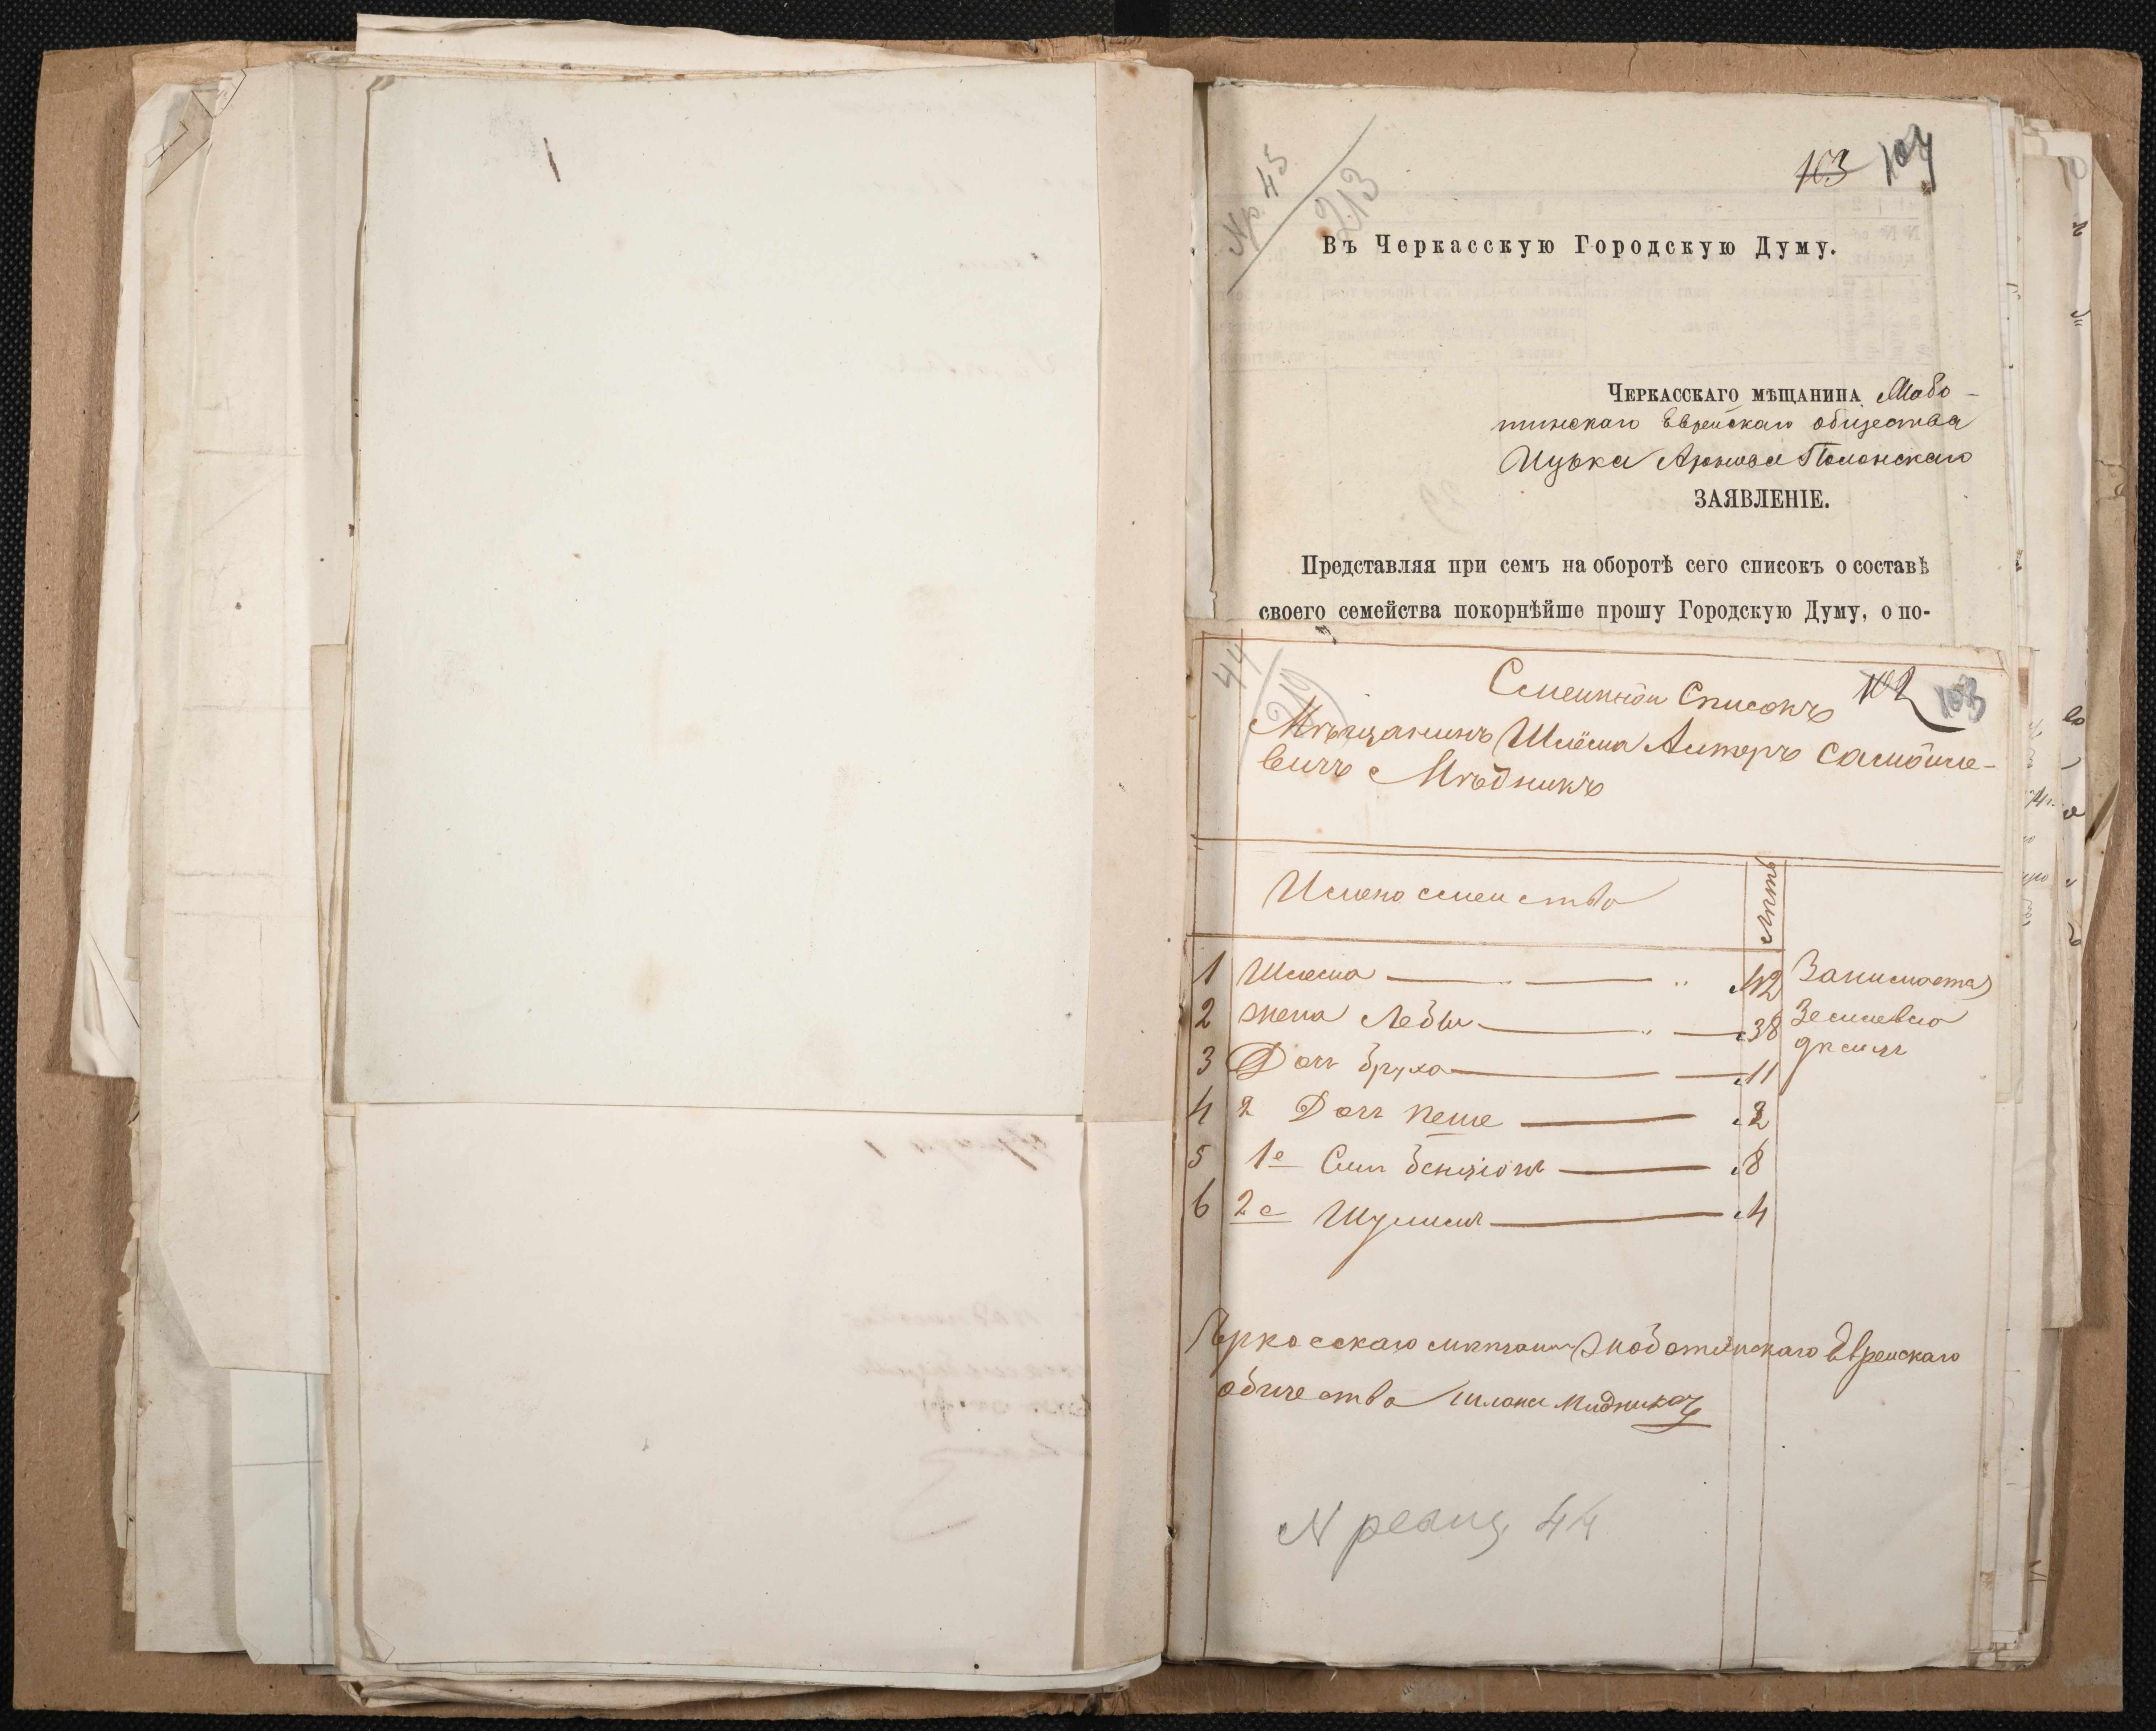 Nр. 45
213
103 104
Въ Черкасскую Городскую Думу.
Черкасскаго мѣщанина Мабо-
тинскаго Еврейскаго общества
Ицька Аронова Полонскаго
ЗАЯВЛЕНІЕ.
Представляя при семъ на оборотѣ сего списокъ о составѣ
своего семейства покорнѣйше прошу Городскую Думу, о по-
44
210
Семеиной Списокъ 102 103
Мѣщанинъ Шлёма Алтеръ Самойле-
вичъ Мѣдникъ
Имено семеиство
Лѣтъ
1 Шлема 42 Занимаетъ
2 жена Лебы 38 Землевло
3 Доч Бруха 11
4 2 Доч пеше 2
5 1е Сын Бенціон 8
6 2е Шулим 4
Черкасскаго Мабатинскаго Евреискаго
обчества Шлома Мидникъ
N ревиз 44